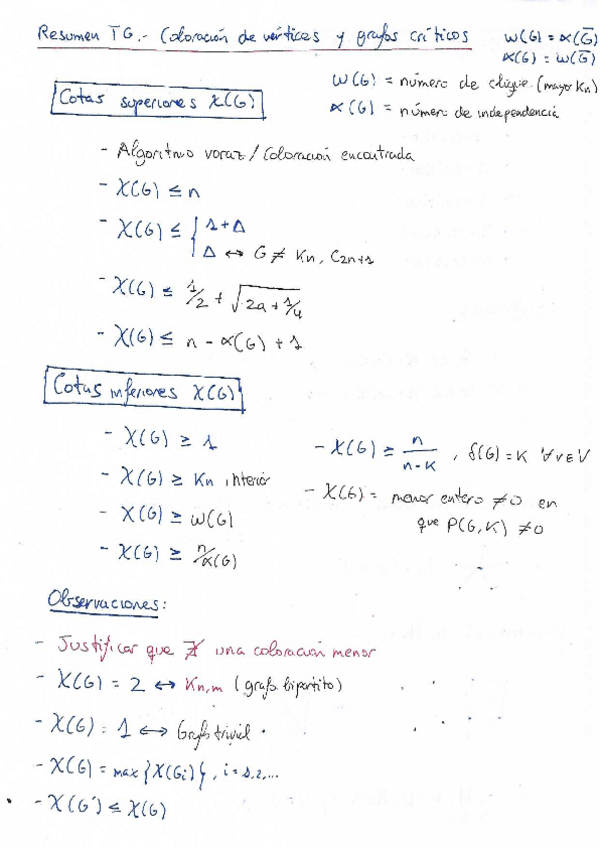 Resumen TG.- Coloración de vértices y grafos críticos
ω(G) = α(G̅)
α(G) = ω(G̅)
ω(G) = número de clique (mayor Kn)
α(G) = número de independencia
Cotas superiores χ(G)
- Algoritmo voraz / Coloración encontrada
- χ(G) ≤ n
- χ(G) ≤ { 1+Δ
Δ ↔ G ≠ Kn, C2n+1
- χ(G) ≤ 1/2 + √(2a + 1/4)
- χ(G) ≤ n - α(G) + 1
Cotas inferiores χ(G)
- χ(G) ≥ 1
- χ(G) ≥ Kn interior
- χ(G) ≥ ω(G)
- χ(G) ≥ n/α(G)
- χ(G) ≥ n/(n-K) , δ(G) = K ∀v∈V
- χ(G) = menor entero ≠0 en
que P(G,K) ≠0
Observaciones:
- Justificar que ∄ una coloración menor
- χ(G) = 2 ↔ Kn,m (grafo bipartito)
- χ(G) = 1 ↔ Grafo trivial
- χ(G) = max {χ(Gi)}, i=1,2,...
- χ(G') ≤ χ(G)